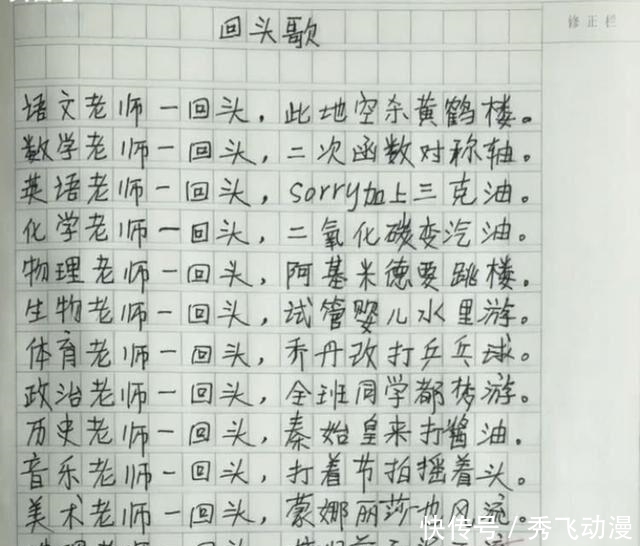 修正栏
回头歌
语文老师一回头，此地空杀黄鹤楼。
数学老师一回头，二次函数对称轴。
英语老师一回头，sorry加上三克油。
化学老师一回头，二氧化碳变汽油。
物理老师一回头，阿基米德要跳楼。
生物老师一回头，试管婴儿水里游。
体育老师一回头，乔丹改打乒乓球。
政治老师一回头，全班同学都梦游。
历史老师一回头，秦始皇来打酱油。
音乐老师一回头，打着节拍摇着头。
美术老师一回头，蒙娜丽莎也风流。
快传号／秀飞动漫
老师一回头